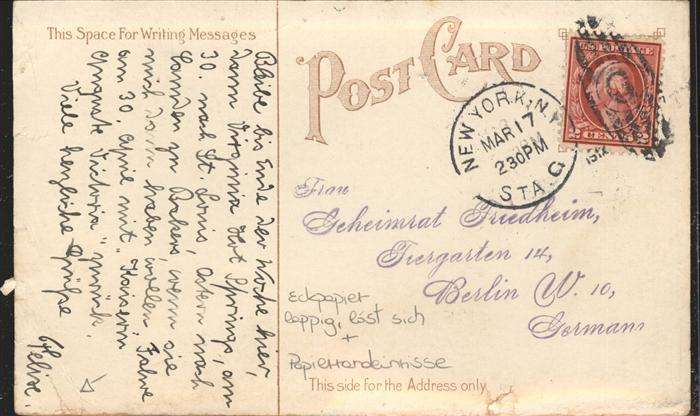 This Space For Writing Messages
POST CARD
U.S. POSTAGE
2 CENTS 2
NEW YORK, N.Y.
MAR 17
2 30 PM
STA. G
Bleibe bis Ende der Woche hier,
dann Virginia Hot Springs, am
30. nach St. Louis, Ostern nach
Camden zu Bakers, wenn sie
mich da haben wollen. Fahre
am 30. April mit "Kaiserin
Auguste Victoria" zurück.
Viele herzliche Grüße
Frau
Geheimrat Friedheim,
Tiergarten 14,
Berlin W. 10,
Germany
Eckpapier
lappig, löst sich
+
Papierrandeinrisse
This side for the Address only